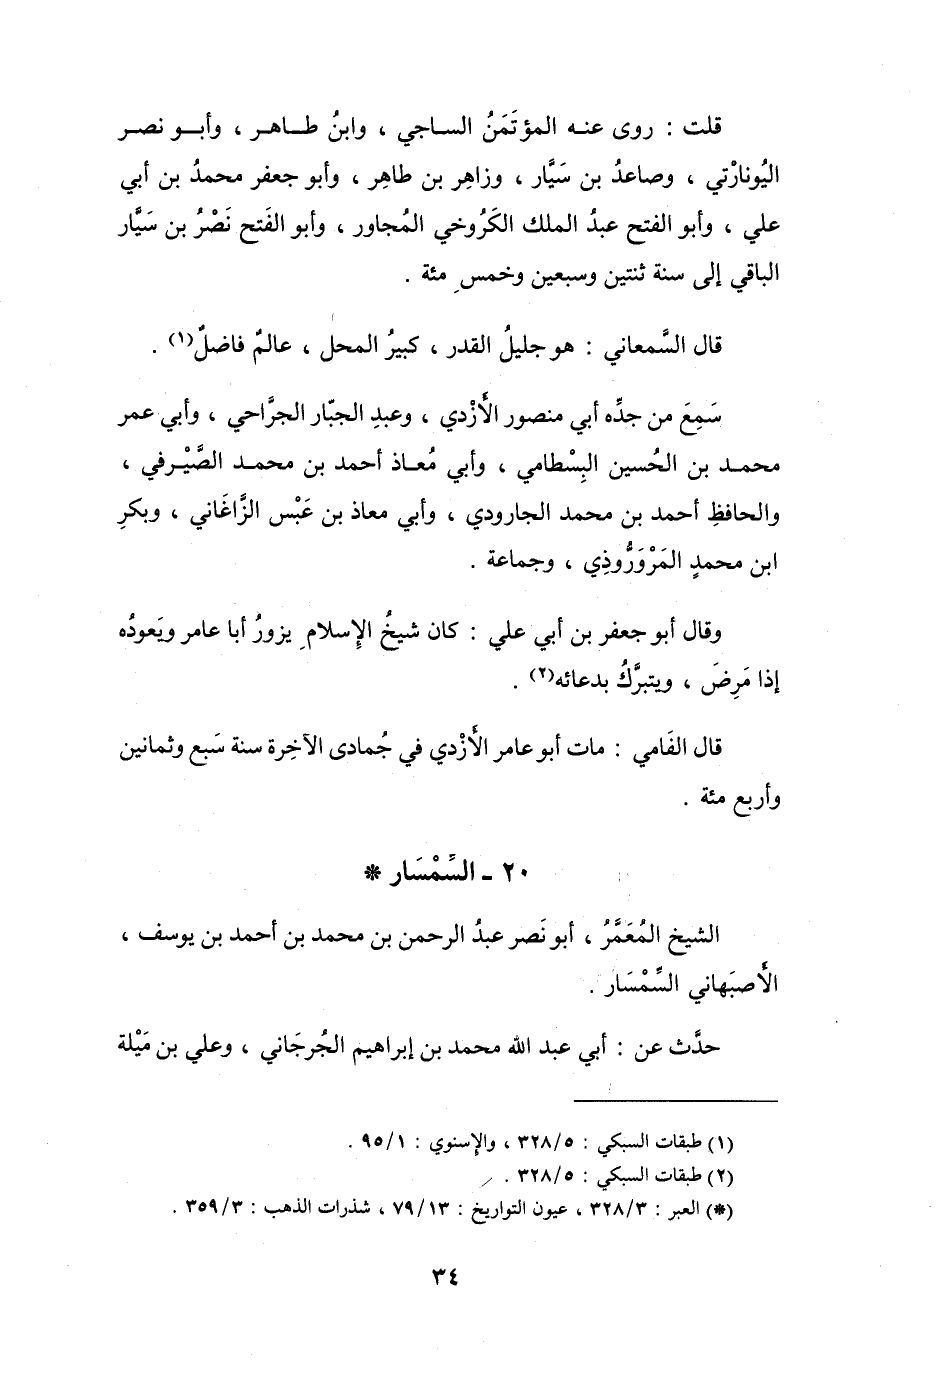 قلت : روى عنه المؤتَمَنُ الساجي ، وابنُ طاهر ، وأبو نصر
اليُونارْتي ، وصاعدُ بن سَيَّار ، وزاهِر بن طاهِر ، وأبو جعفر محمدُ بن أبي
علي ، وأبو الفتح عبدُ الملك الكَرُوخي المُجاور ، وأبو الفَتح نَصْرُ بن سَيَّار
الباقي إلى سنة ثنتين وسبعين وخمسِ مئة .
قال السَّمعاني : هو جليلُ القدر ، كبيرُ المحل ، عالمٌ فاضلٌ(١) .
سَمِعَ من جدِّه أبي منصور الأَزْدي ، وعبدِ الجبّار الجرَّاحي ، وأبي عمر
محمد بن الحُسين البِسْطامي ، وأبي مُعاذ أحمد بن محمد الصَّيْرفي ،
والحافظِ أحمد بن محمد الجارودي ، وأبي معاذ بن عَبْس الزَّاغَاني ، وبكرِ
ابن محمدٍ المَرْوَرُّوذِي ، وجماعة .
وقال أبو جعفر بن أبي علي : كان شيخُ الإِسلامِ يزورُ أبا عامر ويَعودُه
إذا مَرِضَ ، ويتبرَّكُ بدعائه(٢) .
قال الفَامي : مات أبو عامر الأَزْدي في جُمادى الآخِرة سنة سَبع وثمانين
وأربع مئة .
٢٠ - السِّمْسَار *
الشيخ المُعَمَّرُ ، أبو نَصر عبدُ الرحمن بن محمد بن أحمد بن يوسف ،
الأَصبَهاني السِّمْسَار .
حدَّث عن : أبي عبد الله محمد بن إبراهيم الجُرجَاني ، وعلي بن مَيْلة
(١) طبقات السبكي : ٣٢٨/٥ ، والإِسنوي : ٩٥/١ .
(٢) طبقات السبكي : ٣٢٨/٥ .
(*) العبر : ٣٢٨/٣ ، عيون التواريخ : ٧٩/١٣ ، شذرات الذهب : ٣٥٩/٣ .
٣٤